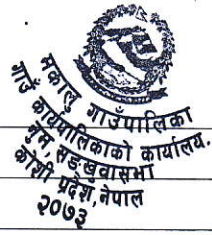 मकालु गाउँपालिका
गाउँ कार्यपालिकाको कार्यालय
नुम, सङ्खुवासभा
कोशी प्रदेश, नेपाल
२०७३